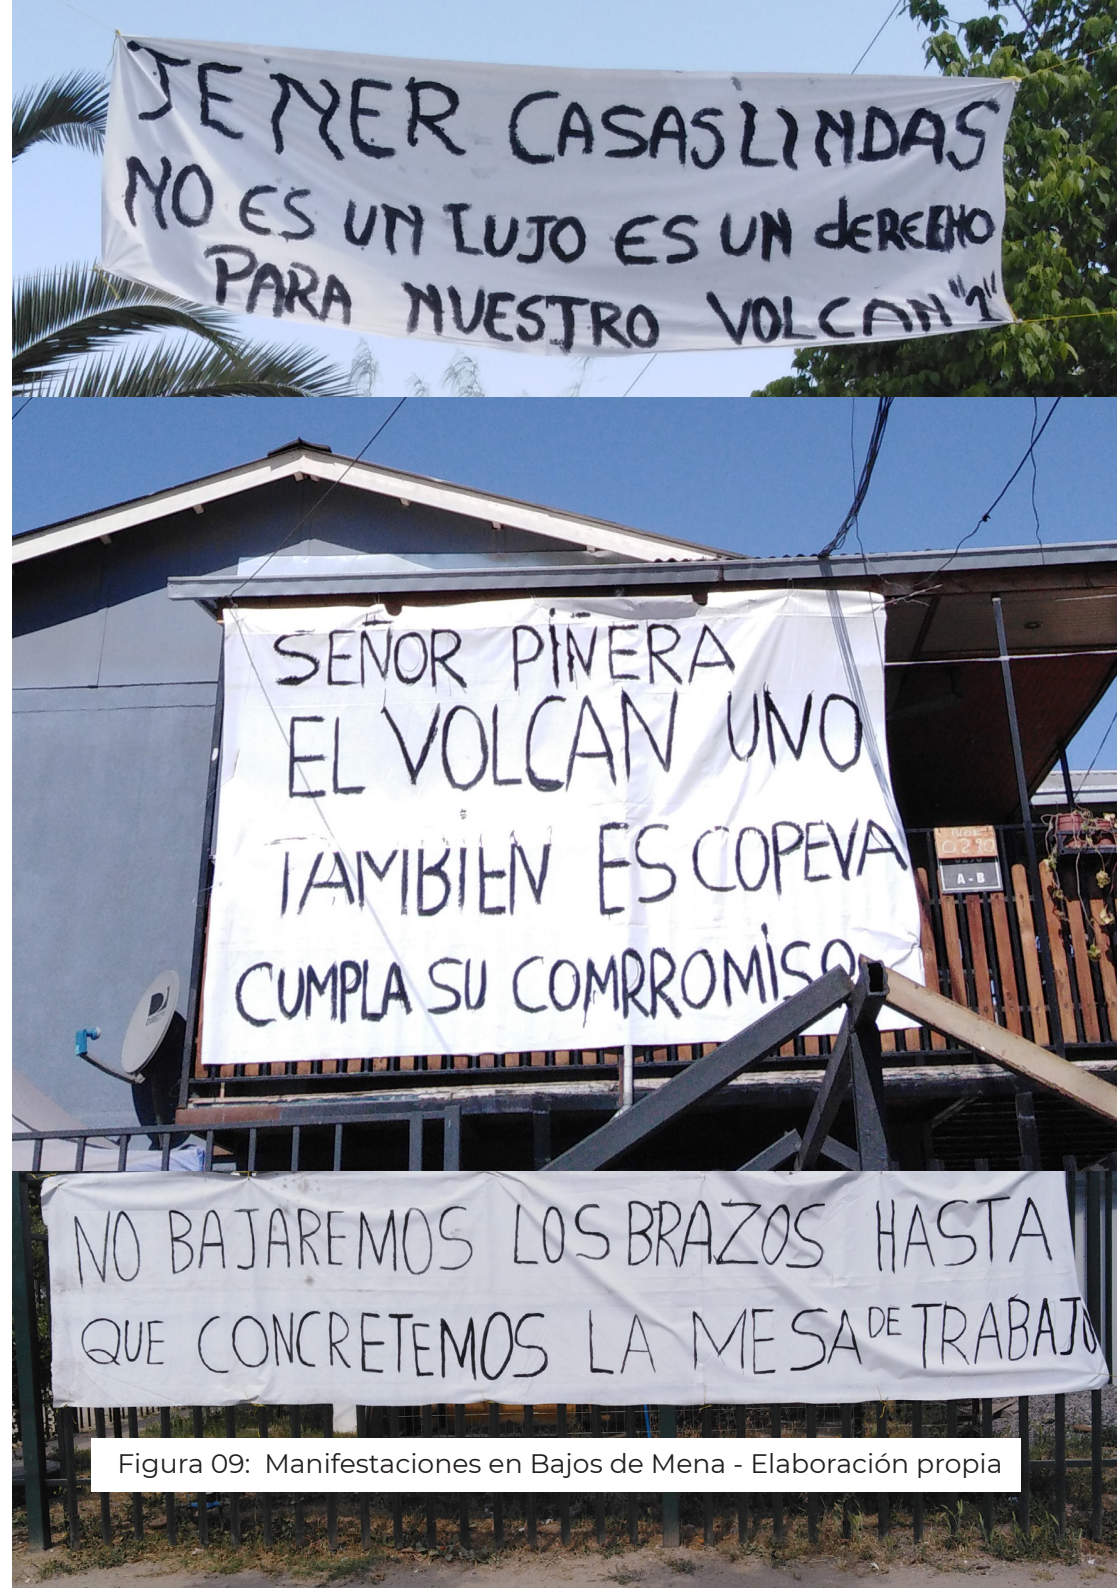 TENER CASAS LINDAS
NO ES UN LUJO ES UN dERECHO
PARA NUESTRO VOLCAN "1"
SEÑOR PIÑERA
EL VOLCAN UNO
TAMBIEN ES COPEVA
CUMPLA SU COMPRROMISO
A - B
NO BAJAREMOS LOS BRAZOS HASTA
QUE CONCRETEMOS LA MESA DE TRABAJO
Figura 09: Manifestaciones en Bajos de Mena - Elaboración propia